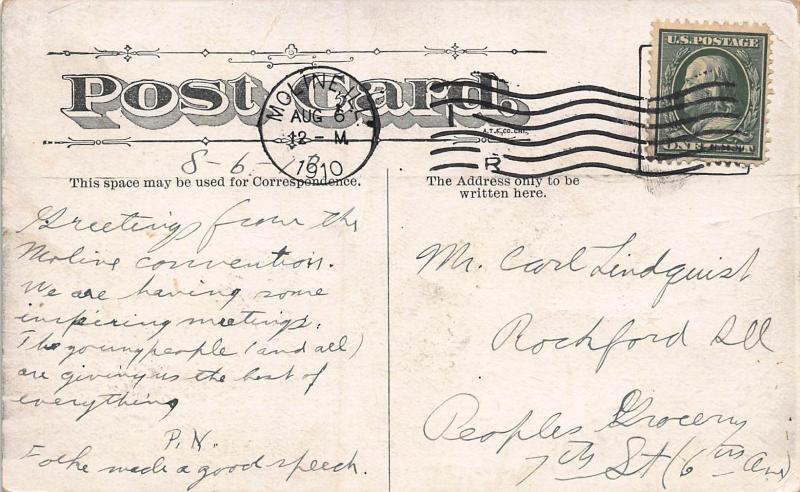 Post Card.
MOLINE, ILL.
AUG 6
12 – M
1910
U.S. POSTAGE
ONE CENT
A.T.K.CO.CHI.
R
8-6-10
This space may be used for Correspondence.
The Address only to be
written here.
Greetings from the
Moline convention.
We are having some
inspiring meetings.
The young people (and all)
are giving us the best of
everything
P.N.
Folke made a good speech.
Mr. Carl Lindquist
Rockford Ill
Peoples Grocery
7th St (6th Ave)